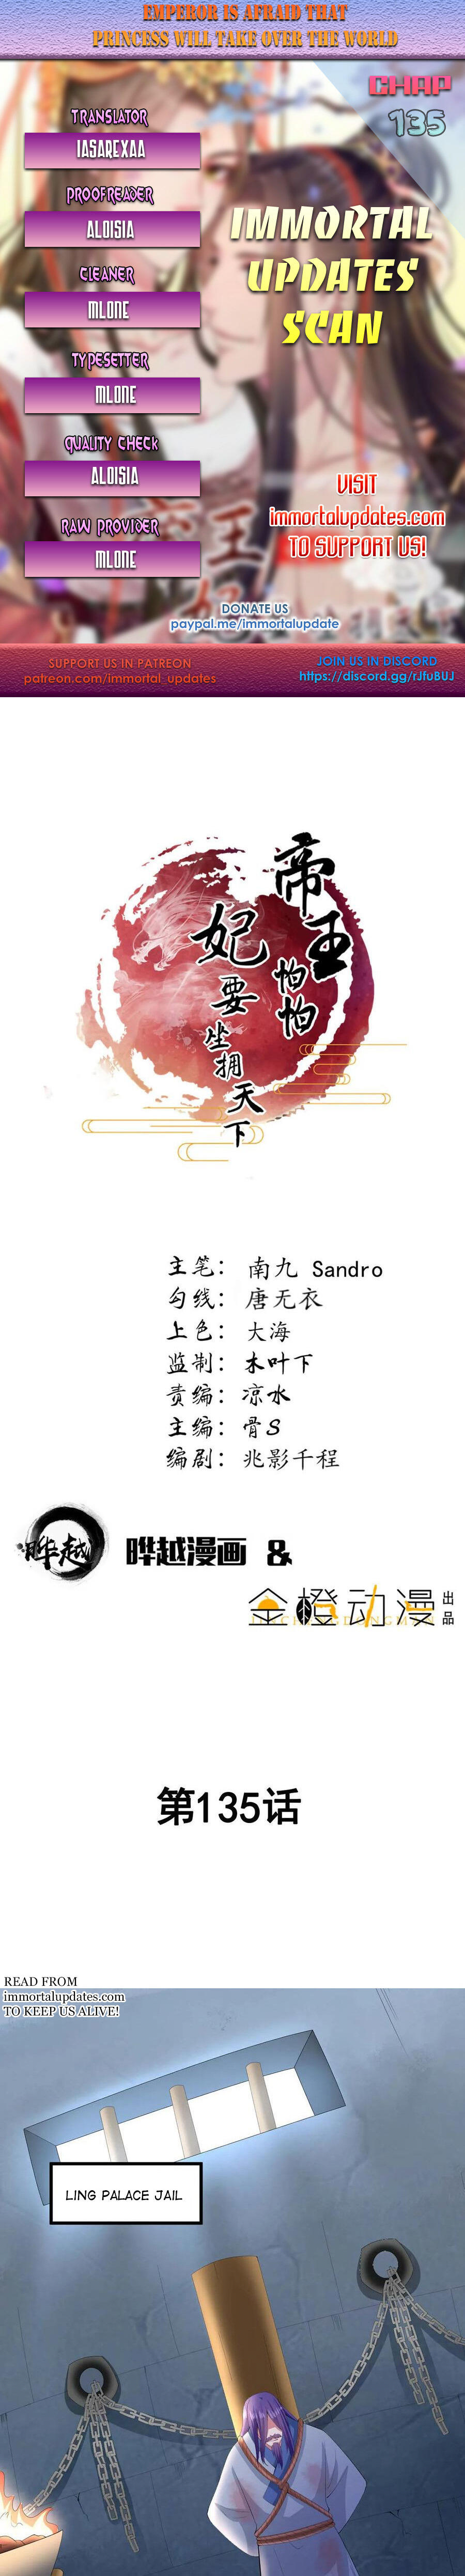 EMPEROR IS AFRAID THAT
PRINCESS WILL TAKE OVER THE WORLD
CHAP
135
TRANSLATOR
IASAREXAA
PROOFREADER
ALOISIA
CLEANER
MLONE
TYPESETTER
MLONE
QUALITY CHECK
ALOISIA
RAW PROVIDER
MLONE
IMMORTAL
UPDATES
SCAN
VISIT
immortalupdates.com
TO SUPPORT US!
DONATE US
paypal.me/immortalupdate
SUPPORT US IN PATREON
patreon.com/immortal_updates
JOIN US IN DISCORD
https://discord.gg/rJfuBUJ
帝王怕怕
妃要坐拥天下
主笔: 南九 Sandro
勾线: 唐无衣
上色: 大海
监制: 木叶下
责编: 凉水
主编: 骨S
编剧: 兆影千程
晔越
晔越漫画 &
金橙动漫 出品
第135话
READ FROM
immortalupdates.com
TO KEEP US ALIVE!
LING PALACE JAIL